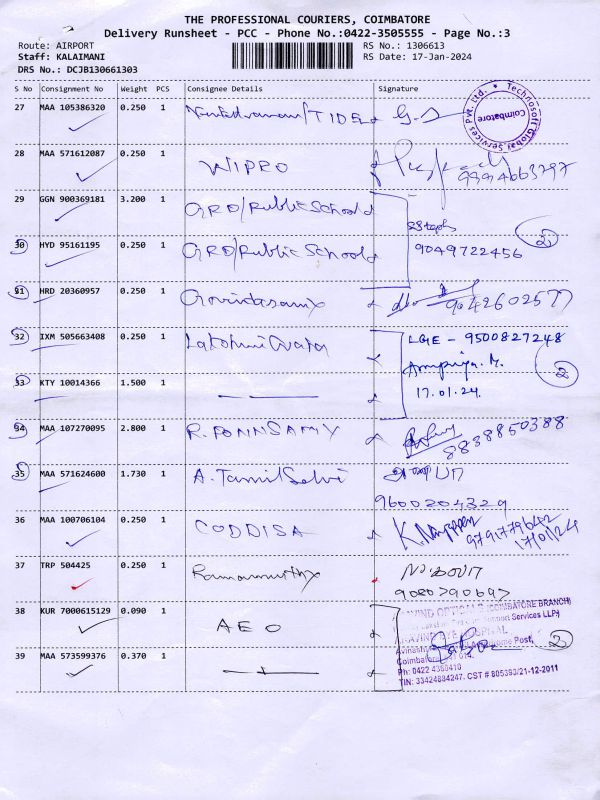 THE PROFESSIONAL COURIERS, COIMBATORE
Delivery Runsheet - PCC - Phone No.:0422-3505555 - Page No.:3
Route: AIRPORT
RS No.: 1306613
Staff: KALAIMANI
RS Date: 17-Jan-2024
DRS No.: DCJB130661303
S No Consignment No Weight PCS Consignee Details Signature
27 MAA 105386320 0.250 1
Technosoft Global Services Pvt. Ltd. * Coimbatore
28 MAA 571612087 0.250 1 WIPRO
9994663797
29 GGN 900369181 3.200 1 GRD/Public School
30 HYD 95161195 0.250 1 GRD/Public School
9049722456
2
31 HRD 20360957 0.250 1 Govindasamy
9042602577
32 IXM 505663408 0.250 1
LGE - 9500827248
33 KTY 10014366 1.500 1
17.01.24
2
34 MAA 107270095 2.800 1 R. PONNSAMY
8838850388
35 MAA 571624600 1.730 1 A. Tamil Selvi
9600204329
36 MAA 100706104 0.250 1 CODDISA
9791779642
17/01/24
37 TRP 504425 0.250 1 Ramamurthy
9080790697
38 KUR 7000615129 0.090 1 AEO
(COIMBATORE BRANCH)
Support Services LLP)
HOSPITAL
2
39 MAA 573599376 0.370 1
Ph: 0422 4360410
TIN: 33424884247. CST # 805393/21-12-2011